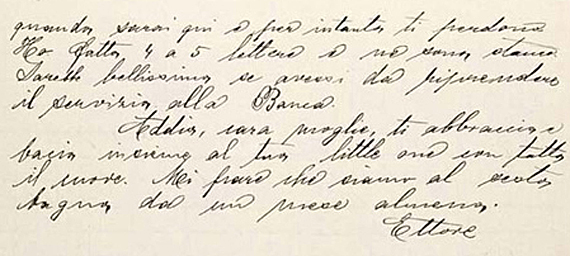 quando sarai qui e per intanto ti perdono
Ho fatto 4 a 5 lettere e ne sono stanco.
Sarebbe bellissimo se avessi da riprendere
il servizio alla Banca.
Addio, cara moglie, ti abbraccia e
bacia insieme al tuo little one con tutto
il cuore. Mi pare che siamo al
da un mese almeno.
Ettore